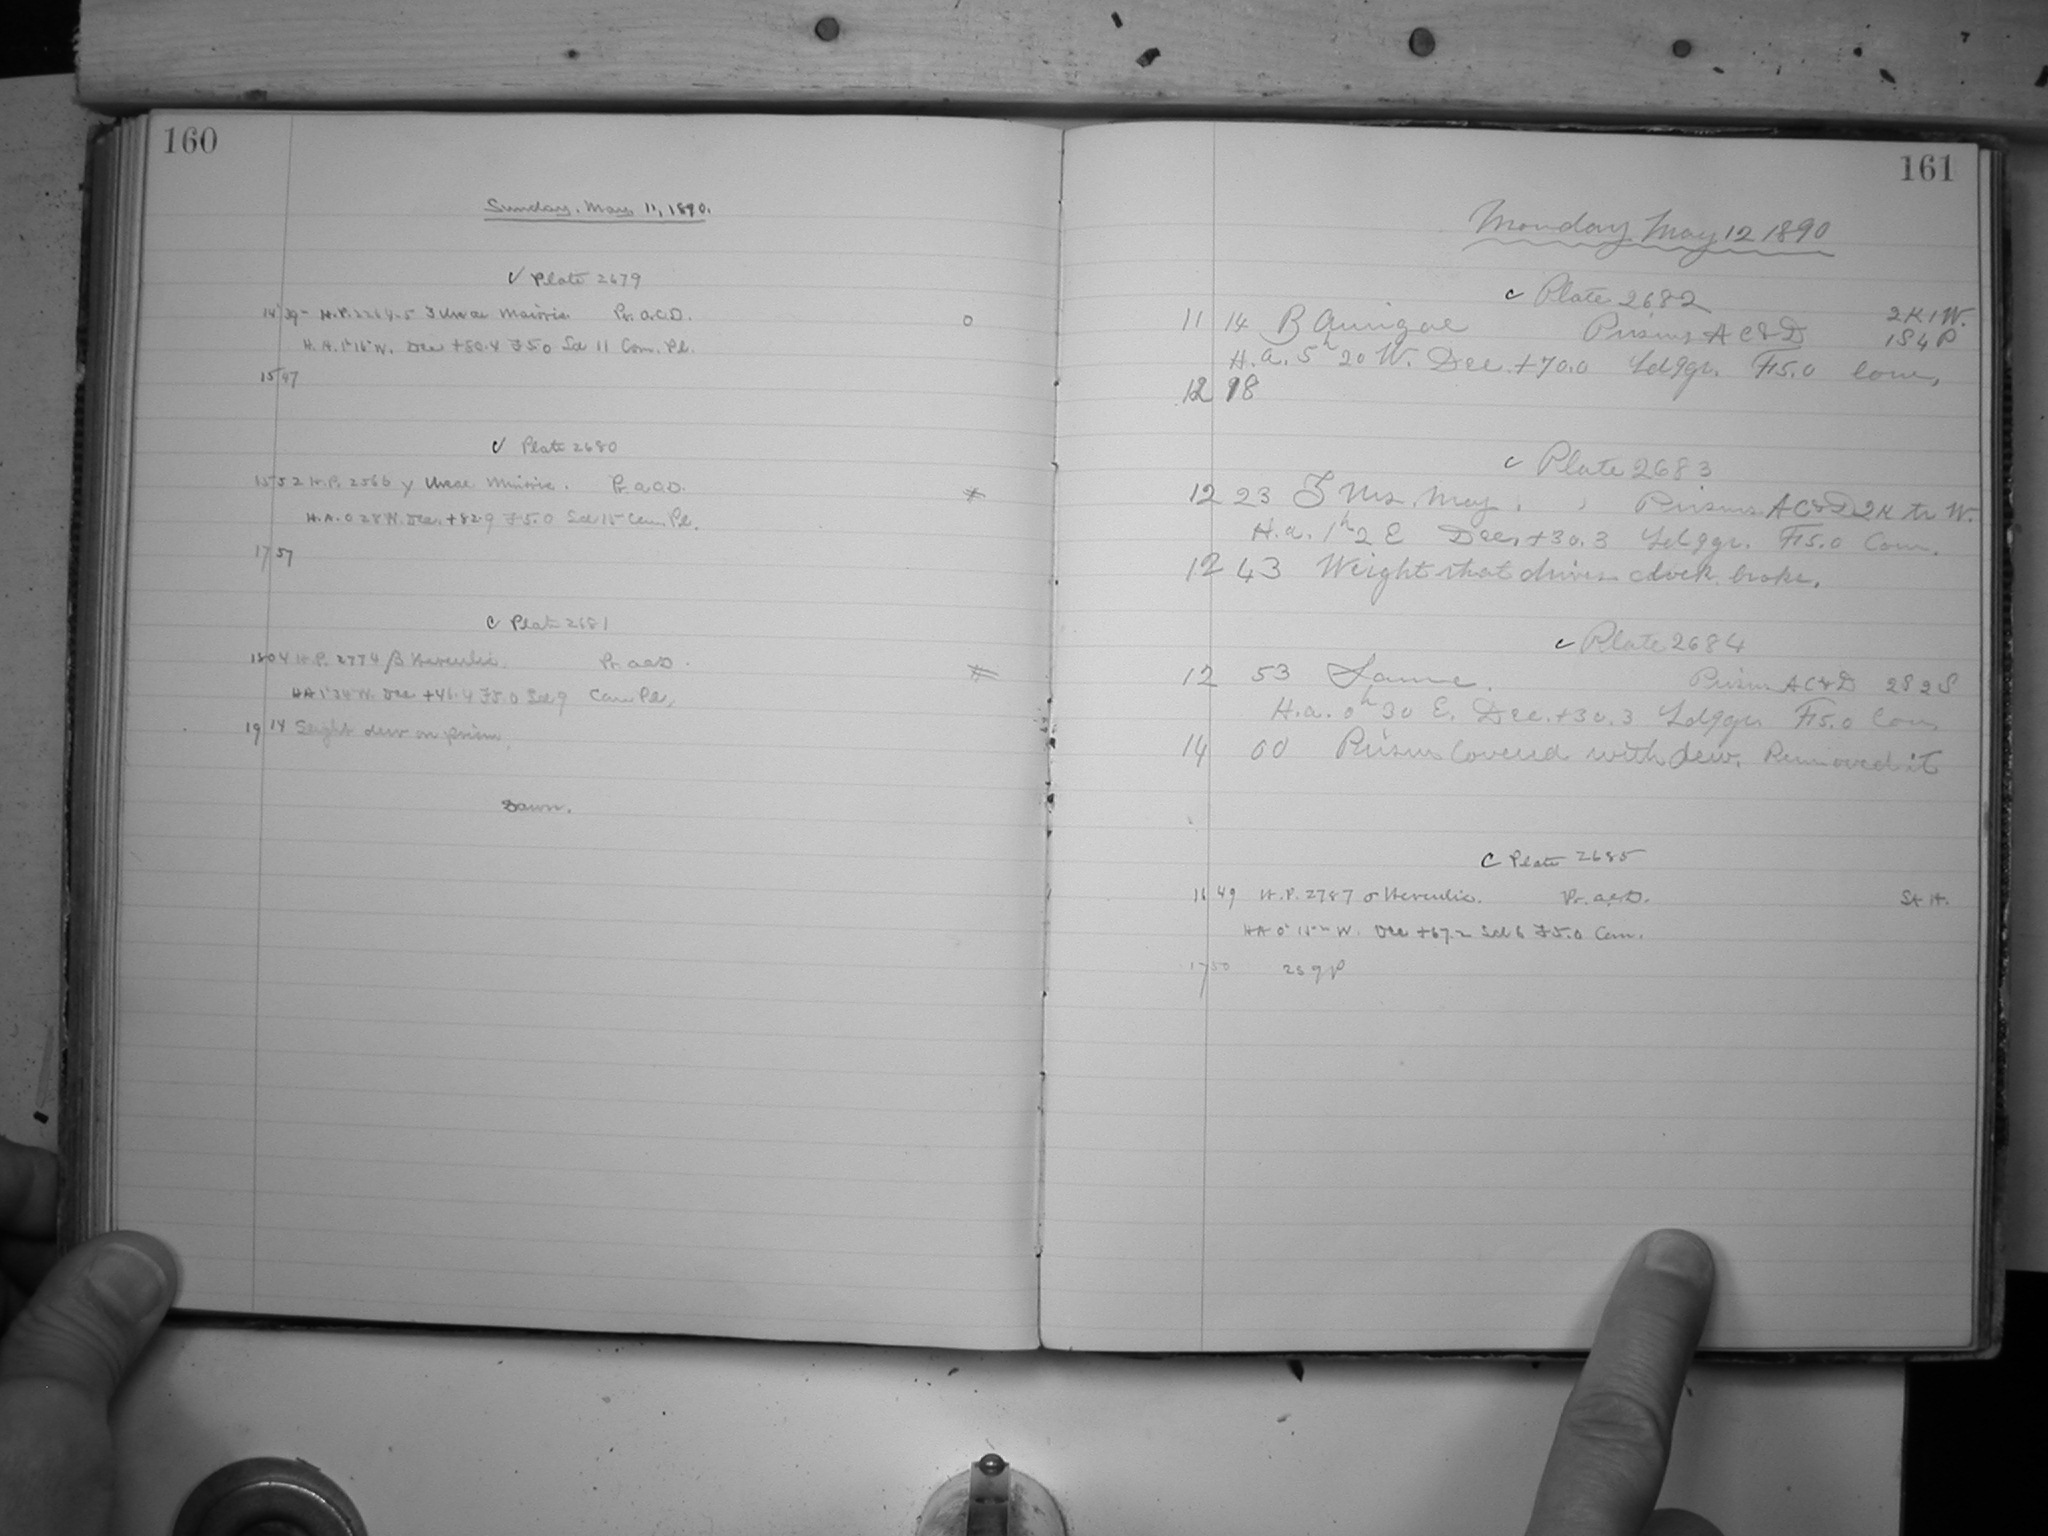 160
Sunday, May 11, 1890.
Plate 2679
14 39 H.P. 2264-5 Ursae Majoris Pr. a.c.D. 0
H.A. 1h 16m W. Dec +50.4 F5.0 Scl 11 Com. Pl.
15 47
Plate 2680
15 52 H.P. 2566 γ Ursae Minoris. Pr. a.c.D.
H.A. 0 28 W. Dec. +82.9 F5.0 Scl 15 Com. Pl.
17 57
c Plate 2681
18 04 H.P. 2774 β Herculis. Pr. a.c.D.
HA 1h 34m W. Dec +46.4 F5.0 Scl 9 Com. Pl.
19 14 Slight dew on prism.
Dawn.
161
Monday May 12 1890
c Plate 2682
2K1W.
11 14 B Aurigae Prisms A C & D 1S4P
H.a. 5h 20 W. Dec. +70.0 F15.0 Com.
12 18
c Plate 2683
12 23 Urs. Maj. Prisms A C & D 2K W.
H.a. 1h 2 E Dec. +30.3 F15.0 Com.
12 43 Weight that drives clock broke.
c Plate 2684
12 53 Same. Prisms A C & D 2S 2S
H.a. 0h 30 E. Dec. +30.3 F15.0 Com.
14 00 Prisms Covered with dew. Removed it
c Plate 2685
16 49 H.P. 2787 σ Herculis. Pr. a.c.D. St H.
HA 0h 15m W. Dec +67.2 Scl 6 F5.0 Com.
17 50 2S 9P